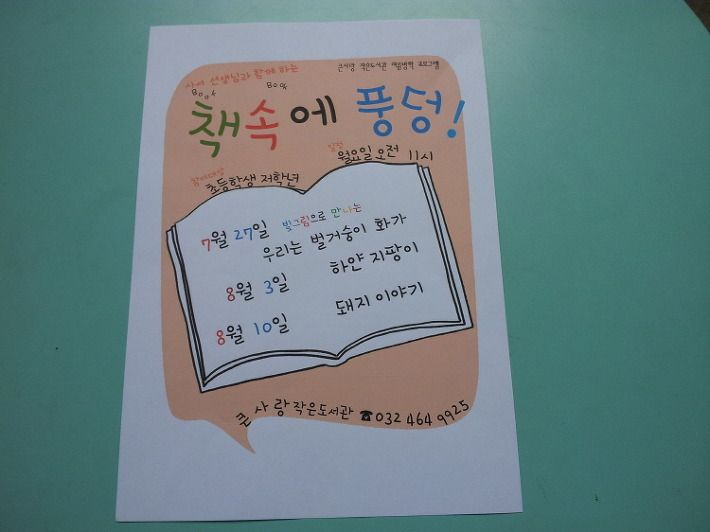 큰사랑 작은도서관 재능방학 프로그램
사서 선생님과 함께 하는
Book Book
책속에 풍덩!
참여대상 초등학생 저학년
일정 월요일 오전 11시
7월 27일 빛그림으로 만나는
우리는 벌거숭이 화가
8월 3일 하얀 지팡이
8월 10일 돼지 이야기
큰사랑작은도서관 ☎032 464 9925